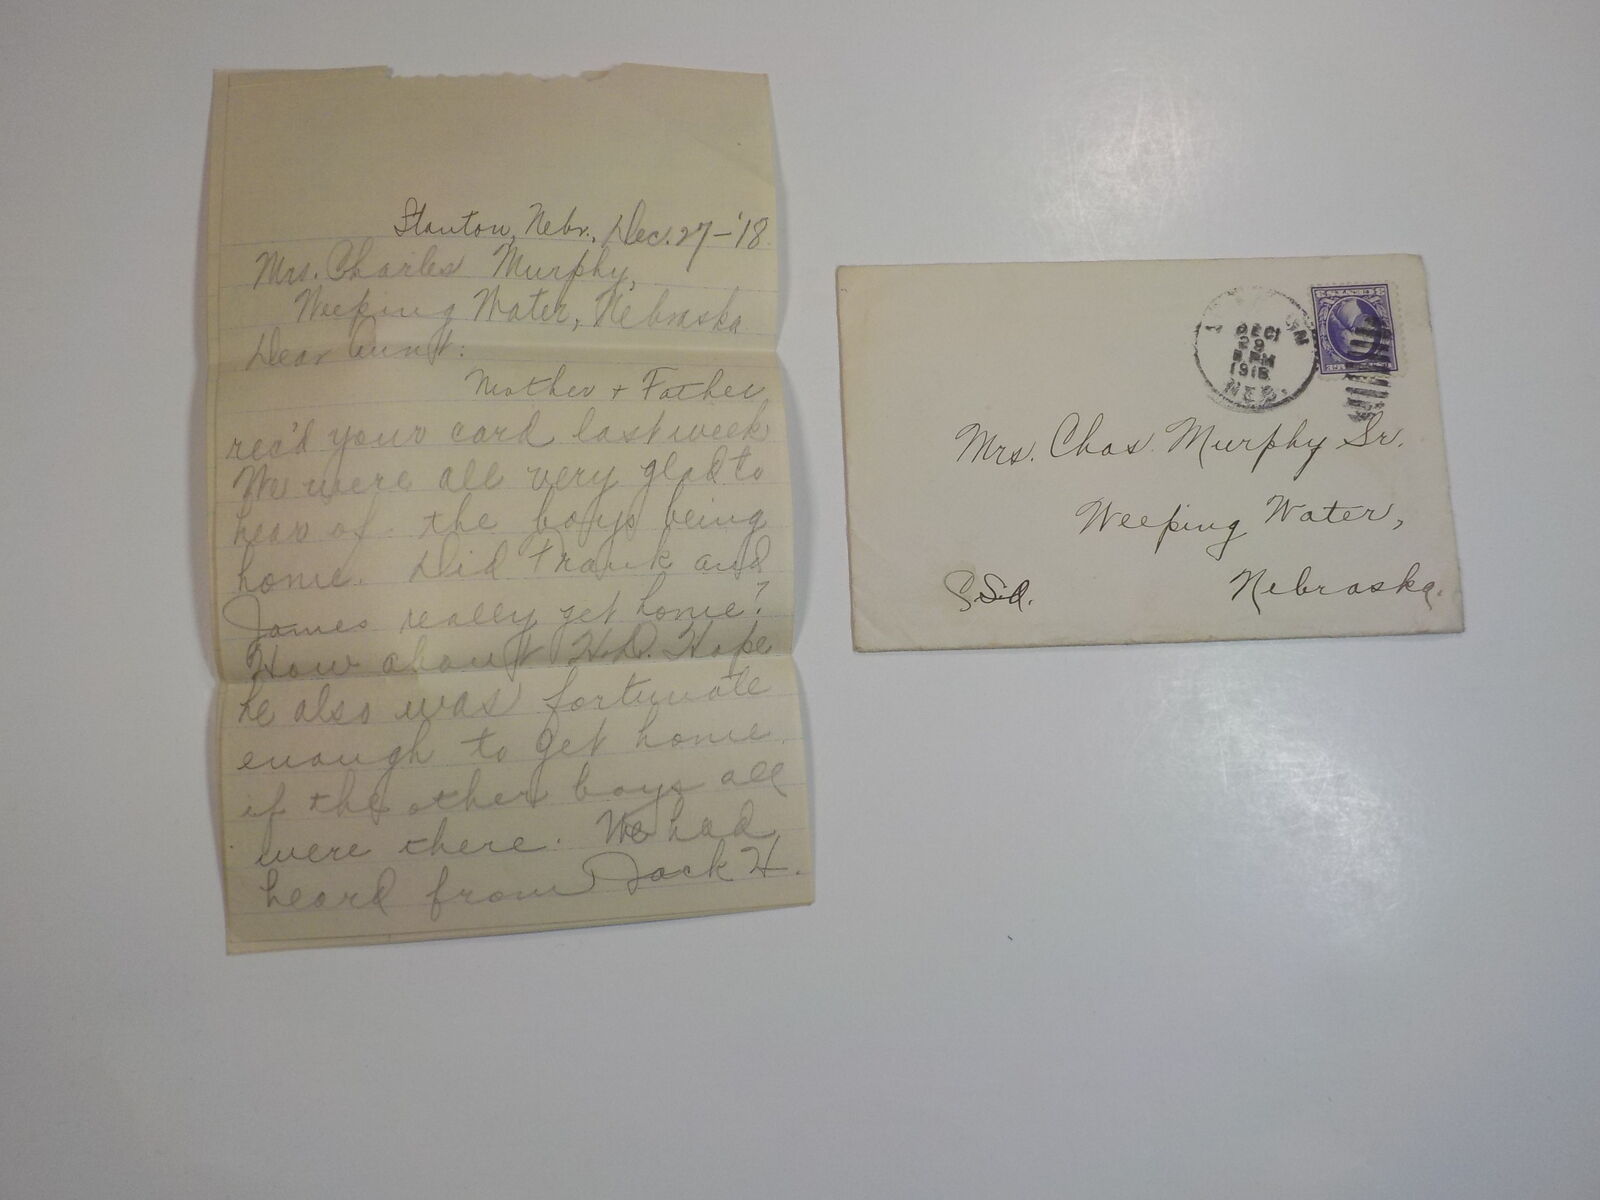 Stanton, Nebr., Dec. 27-'18
Mrs. Charles Murphy,
Weeping Water, Nebraska
Dear Aunt:
Mother + Father
rec'd your card last week
We were all very glad to
hear of the boys being
home. Did Frank and
James really get home?
How about H.D. Hope
he also was fortunate
enough to get home
if the other boys all
were there. We had
heard from Jack H.
DEC
29
PM
1918
NEB.
Mrs. Chas. Murphy Sr.
Weeping Water,
Nebraska.